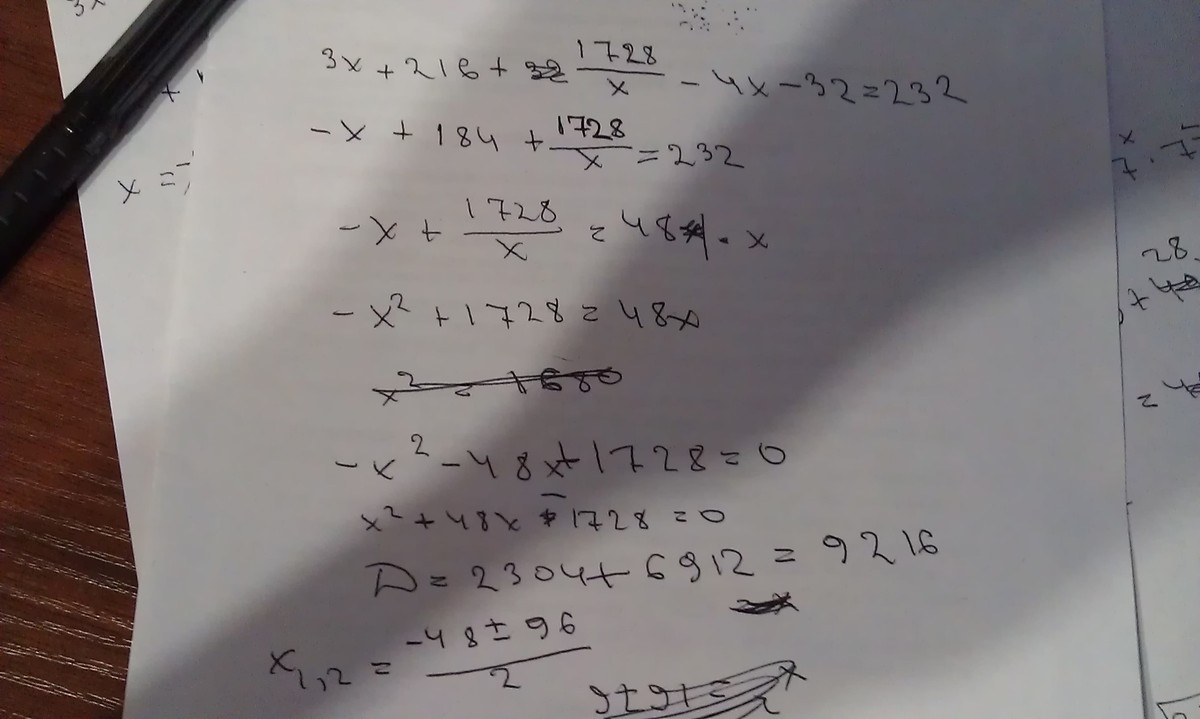 3x + 216 + 1728/x - 4x - 32 = 232
-x + 184 + 1728/x = 232
-x + 1728/x = 48 | · x
-x² + 1728 = 48x
x² = 1680
-x² - 48x + 1728 = 0
x² + 48x - 1728 = 0
D = 2304 + 6912 = 9216
x1,2 = (-48 ± 96)/2
3x
x =
x
7 · 7
28